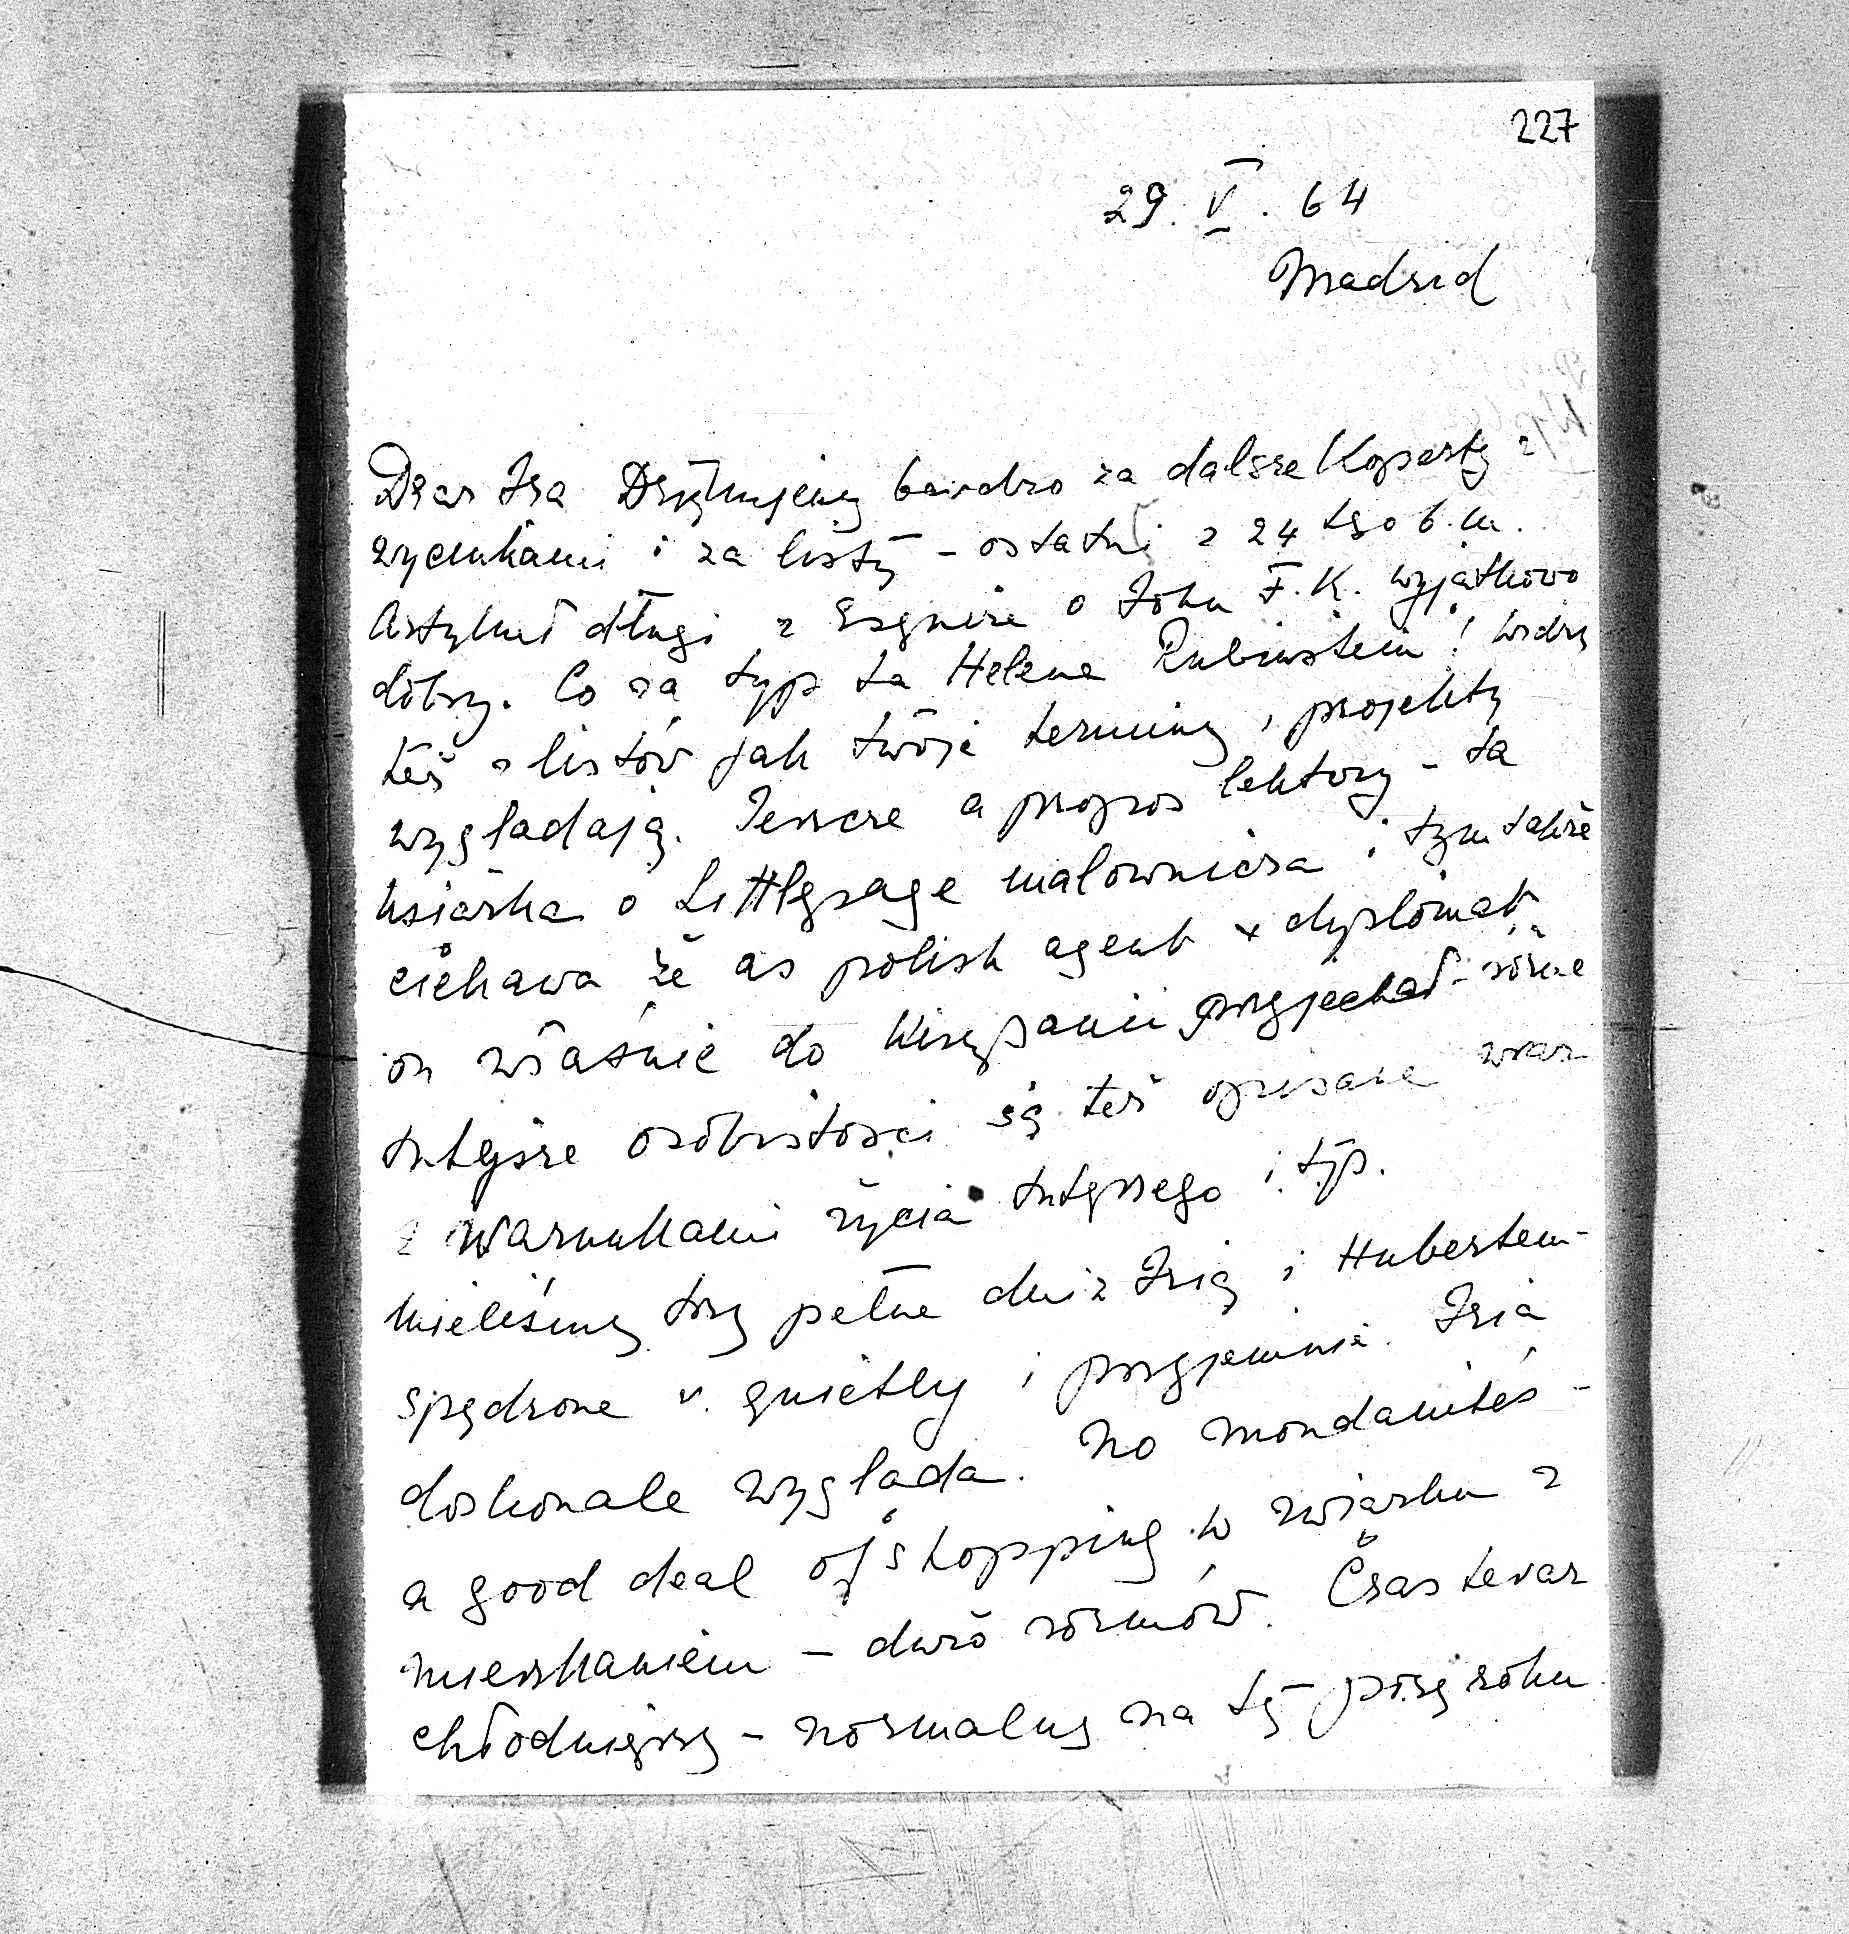 227
29. V. 64
Madrid
Dear Iza Dziękujemy bardzo za dalsze Koperty z
wycinkami i za listy – ostatni z 24 tgo b.m.
Artykuł długi z Esquire o John F.K. wyjątkowo
dobry. Co za typ ta Helena Rubinstein! Widzę
też z listów jak twoje terminy, projekty
wyglądają. Jeszcze a propos lektury – ta
książka o Littlepage malownicza i tym także
ciekawa że as polish agent & dyplomat
on właśnie do Hiszpanii przyjechał – różne
tutejsze osobistości są też opisane wraz
z warunkami życia tutejszego i t.p.
Mieliśmy trzy pełne dni z Izią i Hubertem –
spędzone v. quietly i przyjemnie. Izia
doskonale wygląda. No mondanités –
a good deal of shopping w związku z
mieszkaniem – dużo rozmów. Czas teraz
chłodniejszy – normalny na tę porę roku